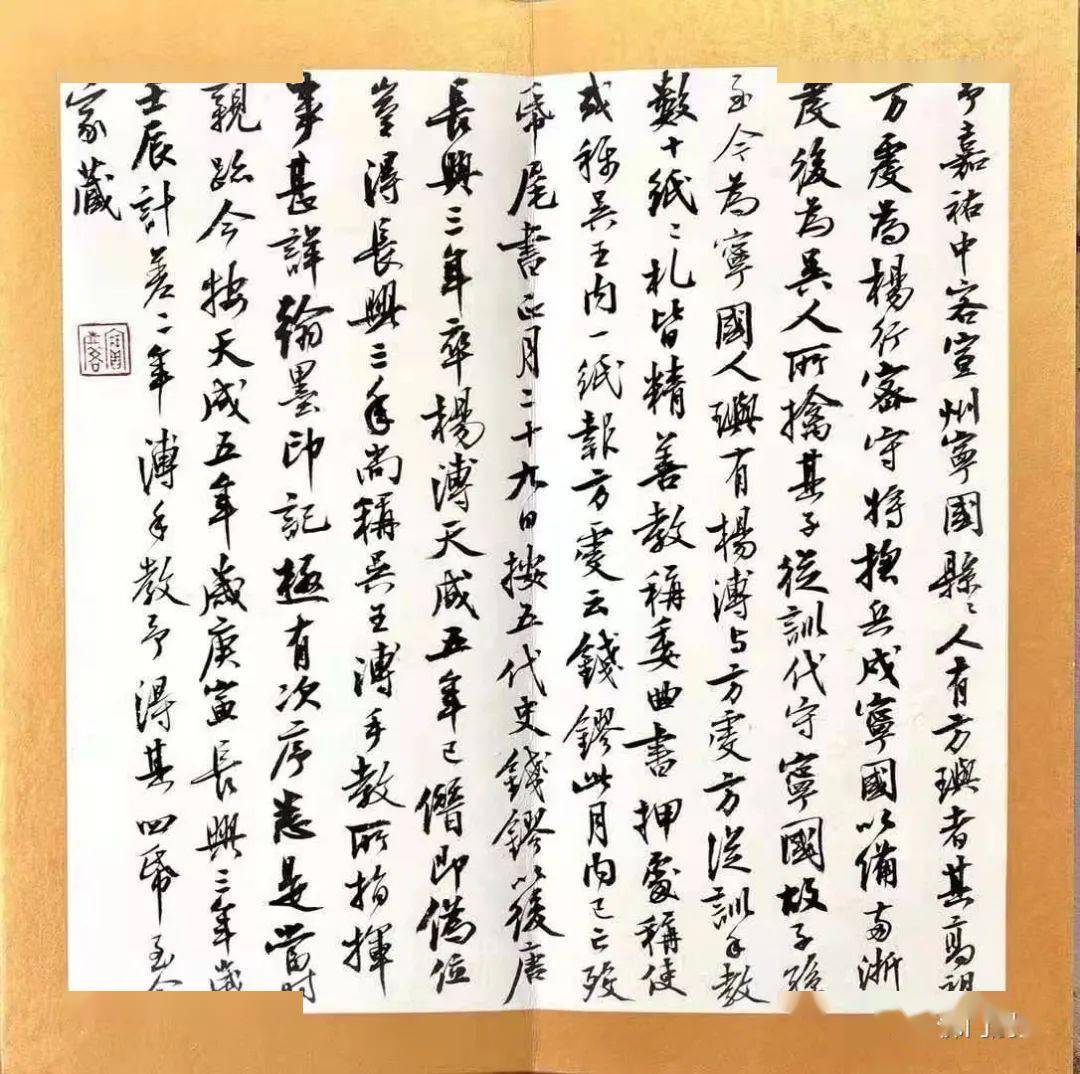 予嘉祐中客宣州寧國縣〻人有方璵者其高祖
方虔為楊行密守將捴兵戍寧國以備兩浙
虔後為吳人所擒其子從訓代守寧國故子孫
至今為寧國人璵有楊溥与方虔方從訓手教
數十紙〻札皆精善教稱委曲書押處稱使
或称吳王内一紙報方虔云錢鏐此月内已亡歿
帋尾書正月二十九日按五代史錢鏐以後唐
長興三年卒楊溥天成五年已僭即偽位
豈得長興三年尚稱吳王溥手教所指揮
事甚詳翰墨印記極有次序悉是當時
親跡今按天成五年歲庚寅長興三年歲
壬辰計差二年溥手教予得其四帋至今
家藏